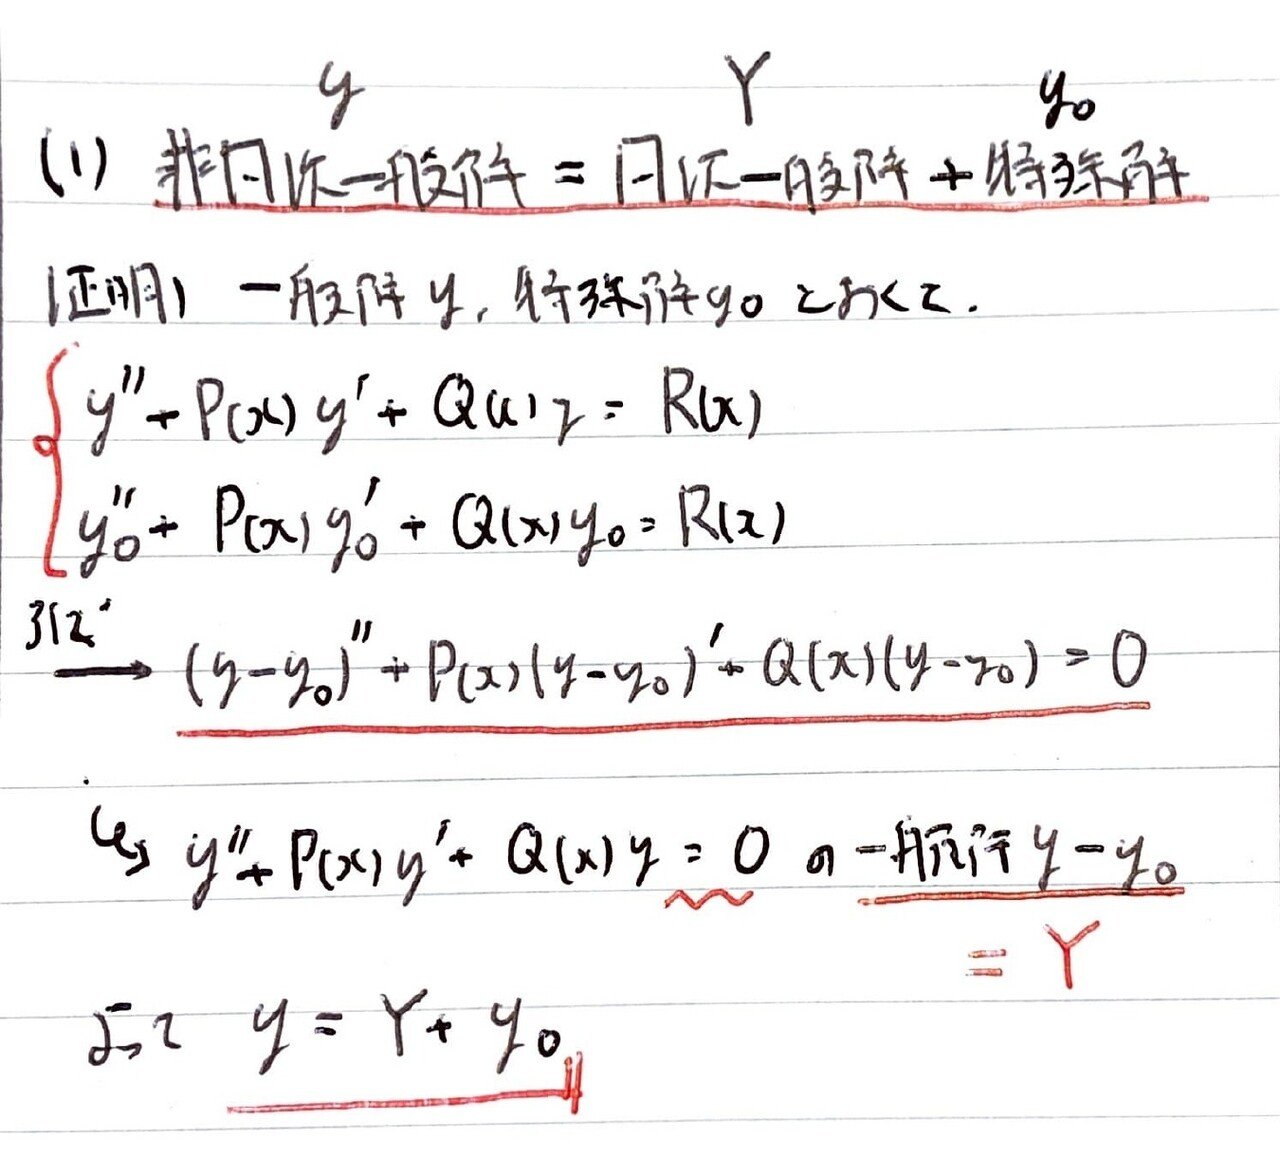 y Y y₀
(1) 非同次一般解 = 同次一般解 + 特殊解
(証明) 一般解 y, 特殊解 y₀ とおくと.
y'' + P(x) y' + Q(x) y = R(x)
y₀'' + P(x) y₀' + Q(x) y₀ = R(x)
引く
→ (y-y₀)'' + P(x)(y-y₀)' + Q(x)(y-y₀) = 0
↳ y'' + P(x) y' + Q(x) y = 0 の一般解 y - y₀
= Y
よって y = Y + y₀